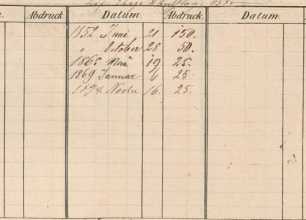 Abdruck. Datum Abdruck. Datum
1852 Juni 21 150.
" October 25 50.
1865 Mai 19 25.
1869 Januar 6 25.
1874 Novbr 16. 25.